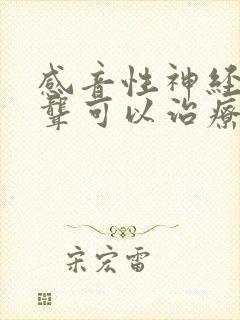 感音性神经
聋可以治疗
宋宏雷